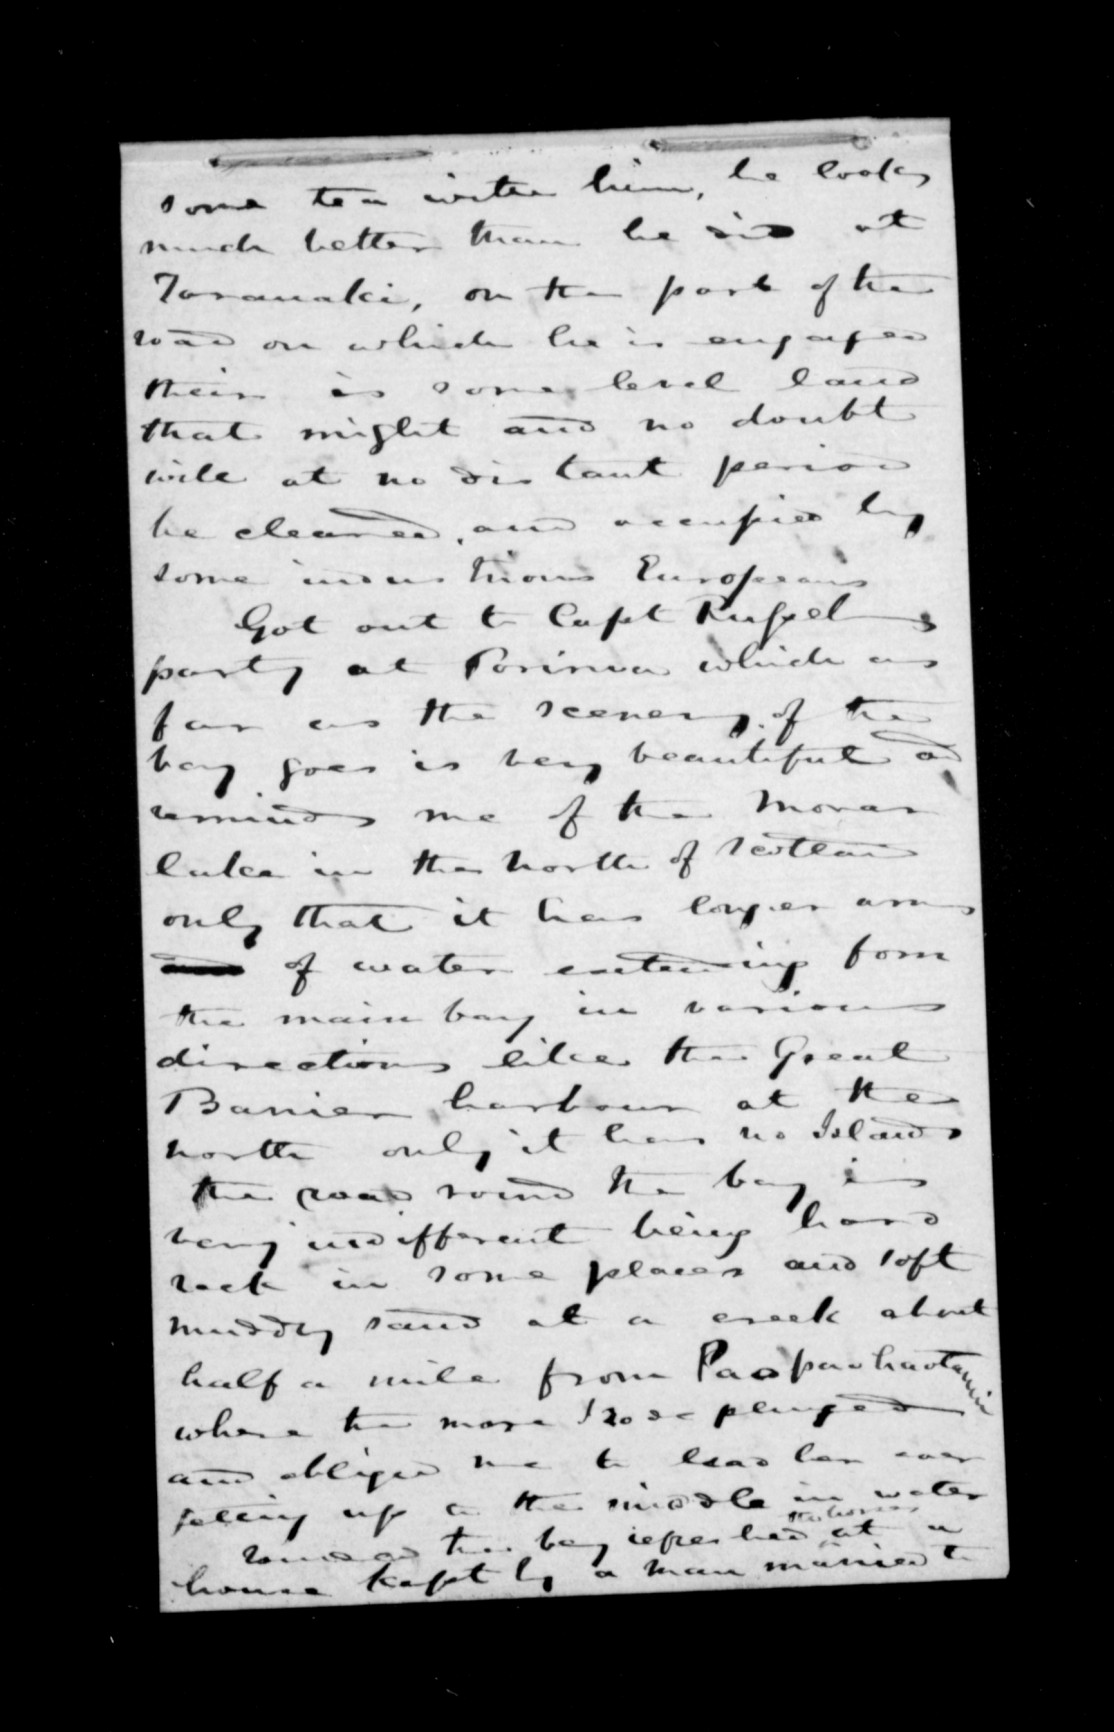 some tea with him, he looks
much better than he did at
Taranaki, on the part of the
road on which he is engaged
their is some level land
that might and no doubt
will at no distant period
be cleared, and occupied by
some industrious Europeans
Got out to Capt Russels
party at Porirua which as
far as the scenery of the
bay goes is very beautiful and
reminds me of the Morar
lake in the North of Scotland
only that it has longer arms
of water extending from
the main bay in various
directions like the Great
Barrier harbour at the
north only it has no Islands
the road round the bay is
very indifferent being hard
rock in some places and soft
muddy sand at a creek about
half a mile from
where the mare I rode plunged
and obliged me to lead her over
getting up to the middle in water
the bay refreshed the horses at a
house kept by a man married to